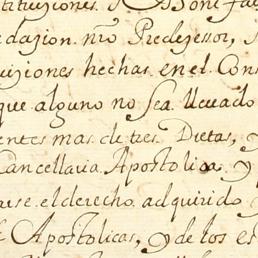 tituiziones d Bonifa
dazion. nr̃o Predezessor, s
uiziones hechas en el Cons
que alguno no sea lleuado
entes mas de tres Dietas, y
Cancellaria Apostolica y
arse el derecho adquirido y
Apostolicas, y de los es